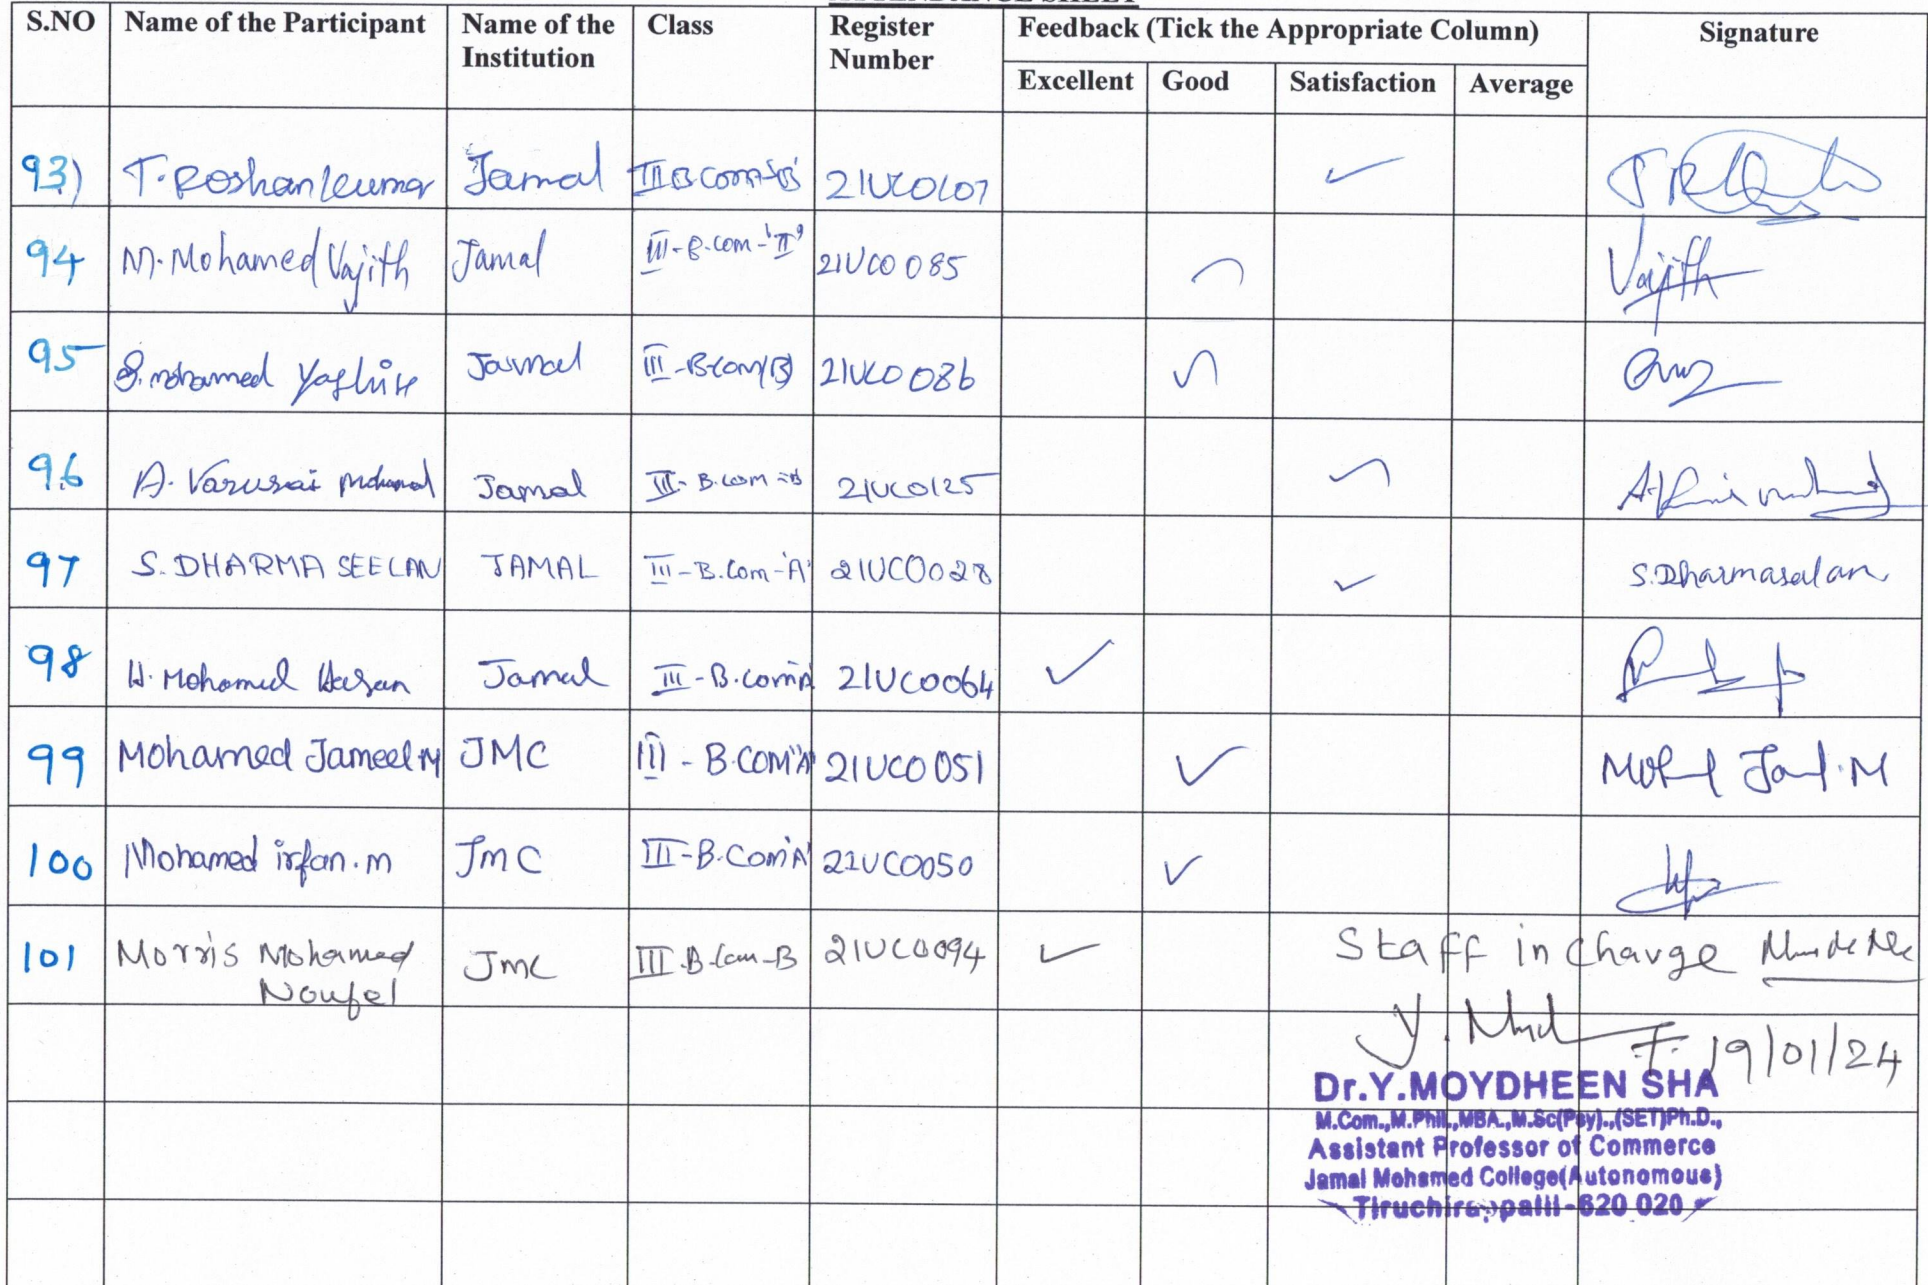 S.NO Name of the Participant Name of the Institution Class Register Number Feedback (Tick the Appropriate Column) Signature
Excellent Good Satisfaction Average
93) T. Roshankumar Jamal III B.com 'B' 21UCO107
94 M. Mohamed Vajith Jamal III-B.com- 21UCO085 Vajith
95 S. mohamed Jamal III-B.com(B) 21UCO086
96 A. Varusai Mohamed Jamal III- B.com -B 21UCO125
97 S. DHARMA SEELAN JAMAL III-B.Com-'A' 21UCO028 S.Dharmaseelan
98 H. Mohamed Hasan Jamal III-B.com'A' 21UCO064
99 Mohamed Jameel M JMC III - B.COM'A' 21UCO051
100 Mohamed irfan.m JmC III-B.Com'A' 21UCO050
101 Morris Mohamed Noufel JmC III B.Com-B 21UCO094 Staff in charge
19/01/24
Dr.Y.MOYDHEEN SHA
M.Com.,M.Phil.,MBA.,M.Sc(Psy).,(SET)Ph.D.,
Assistant Professor of Commerce
Jamal Mohamed College(Autonomous)
Tiruchirappalli-620 020